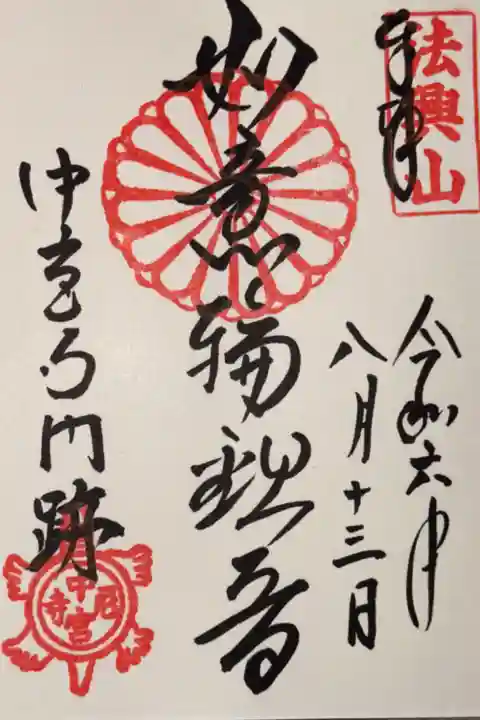 法興山
奉拝
令和六年
八月十三日
如意輪観音
中宮寺門跡
中宮尼寺